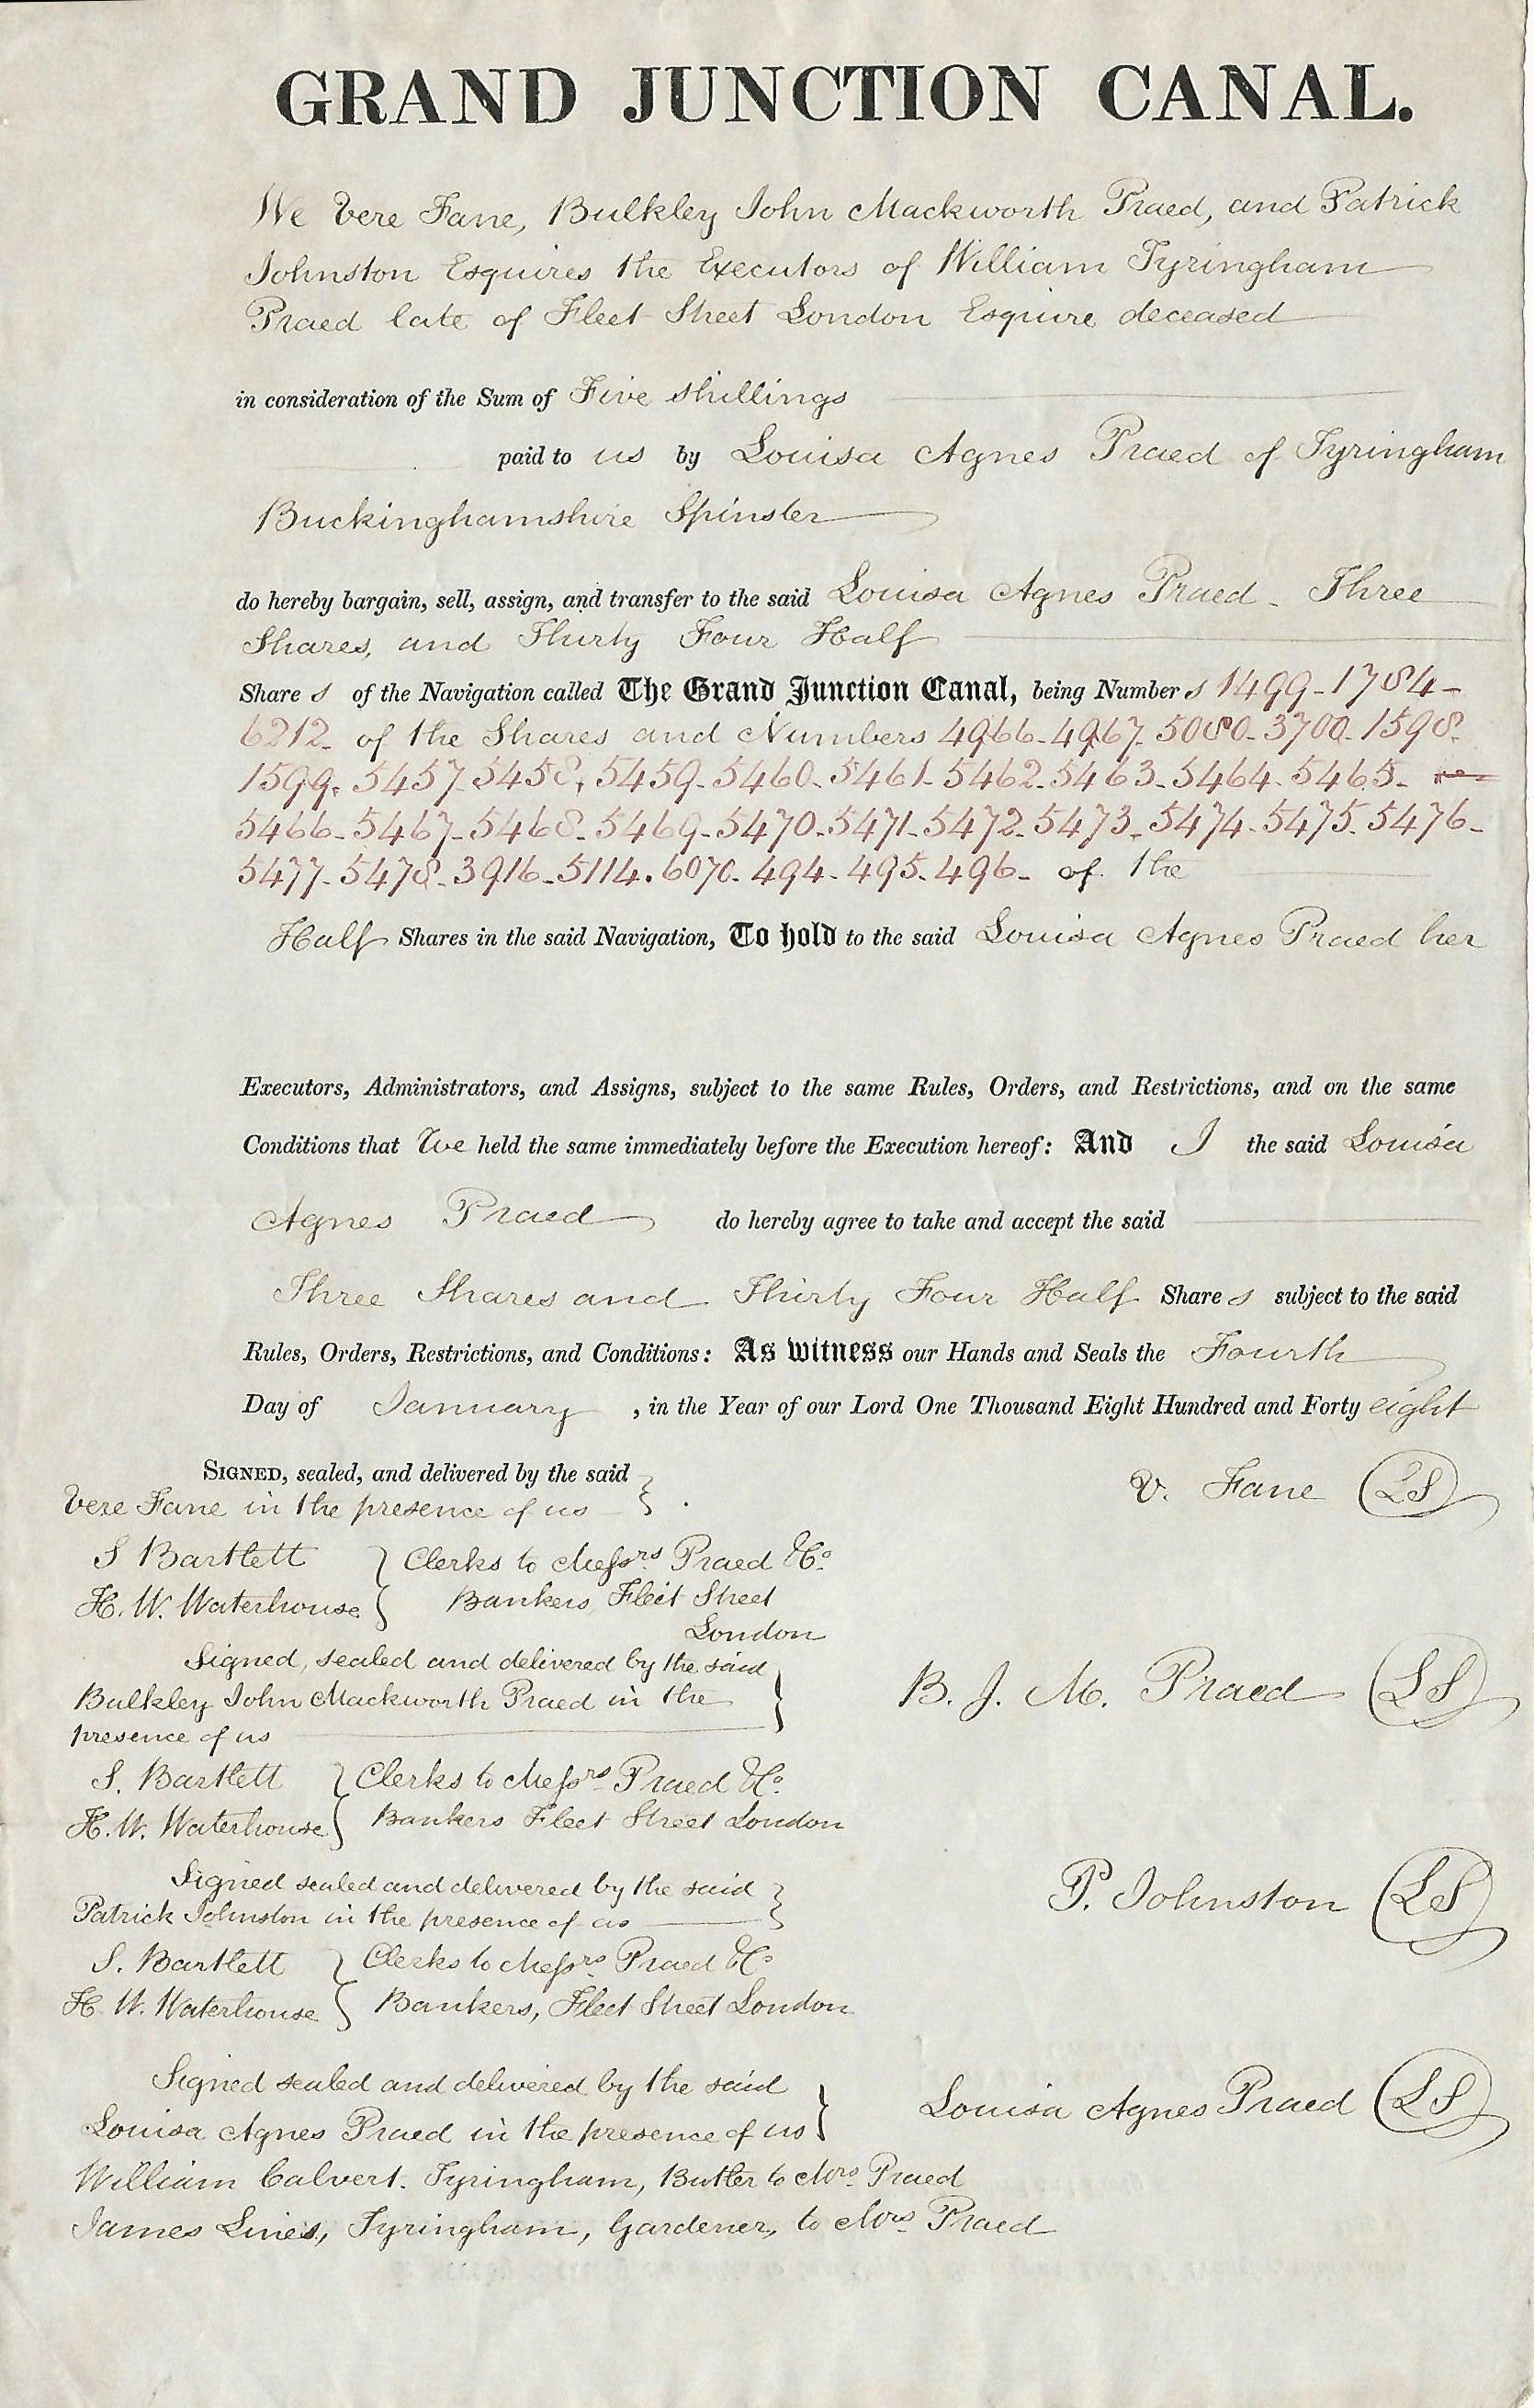 GRAND JUNCTION CANAL.
We Vere Fane, Bulkley John Mackworth Praed, and Patrick
Johnston Esquires the Executors of William Tyringham
Praed late of Fleet Street London Esquire deceased
in consideration of the Sum of Five Shillings
paid to us by Louisa Agnes Praed of Tyringham
Buckinghamshire Spinster
do hereby bargain, sell, assign, and transfer to the said Louisa Agnes Praed - Three
Shares, and Thirty Four Half
Share s of the Navigation called The Grand Junction Canal, being Number s 1499-1784-
6212- of the Shares and Numbers 4966-4967-5080-3700-1598-
1599-5457-5458-5459-5460-5461-5462-5463-5464-5465-
5466-5467-5468-5469-5470-5471-5472-5473-5474-5475-5476-
5477-5478-3916-5114.6070-494-495-496- of the
Half Shares in the said Navigation, To hold to the said Louisa Agnes Praed her
Executors, Administrators, and Assigns, subject to the same Rules, Orders, and Restrictions, and on the same
Conditions that We held the same immediately before the Execution hereof: And I the said Louisa
Agnes Praed do hereby agree to take and accept the said
Three Shares and Thirty Four Half Share s subject to the said
Rules, Orders, Restrictions, and Conditions: As witness our Hands and Seals the Fourth
Day of January, in the Year of our Lord One Thousand Eight Hundred and Forty eight
SIGNED, sealed, and delivered by the said
Vere Fane in the presence of us
V. Fane LS
S Bartlett } Clerks to Messrs Praed & Co.
H. W. Waterhouse } Bankers, Fleet Street
London
Signed, sealed and delivered by the said
Bulkley John Mackworth Praed in the
presence of us
B. J. M. Praed LS
S. Bartlett } Clerks to Messrs Praed & Co.
H. W. Waterhouse } Bankers Fleet Street London
Signed sealed and delivered by the said
Patrick Johnston in the presence of us
P. Johnston LS
S. Bartlett } Clerks to Messrs Praed & Co
H. W. Waterhouse } Bankers, Fleet Street London
Signed sealed and delivered by the said
Louisa Agnes Praed in the presence of us
Louisa Agnes Praed LS
William Calvert. Tyringham, Butler to Mrs. Praed
James Lines, Tyringham, Gardener, to Mrs. Praed